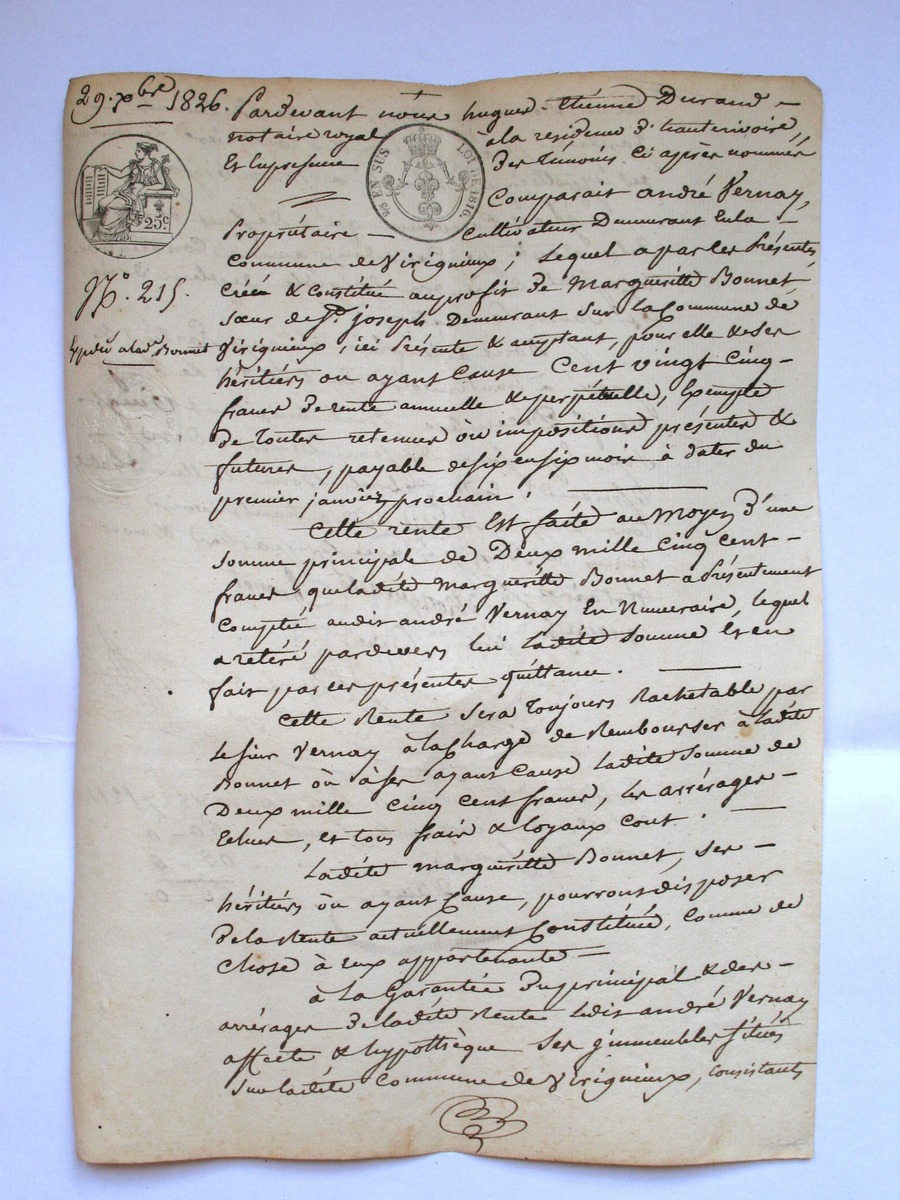 29. xbre 1826.
25c
EN SUS
LOI DE 1816.
N.o 215.
Bonnet
Pardevant nous hugues-thienne Durand -
notaire royal à la residence d'hauterivoire,
Et En presence Des témoins Ci après nommés
Comparait andré Vernay,
Propriétaire - Cultivateur Demeurant En la -
Commune de Virigneux ; Lequel a par les Présentes
Créée & Constitué au profit de Marguéritte Bonnet
sœur de joseph Demeurant sur la Commune de
Virigneux, ici Présente & acceptant, pour elle & ses
héritiers ou ayant Cause Cent vingt Cinq -
francs De rente annuelle & perpétuelle, Exempte
de toutes retenues où impositions présentes &
futures, payable de six en six mois à dater du
premier janvier prochain.
Cette rente Est faite au moyen d'une
Somme principale de Deux mille Cinq Cent -
francs, que ladite marguéritte Bonnet a Présentement
Comptée audit andré Vernay En Numeraire, lequel
a retiré pardevers lui ladite Somme Et en
fait par les présentes quittance.
Cette Rente sera toujours Rachetable par
Le sieur Vernay à la Charge de Rembourser à ladite
Bonnet où à ses ayant Cause ladite Somme de
Deux mille Cinq Cent francs, les arrérages -
Echues, et tous frais & loyaux Cout.
Ladite marguéritte Bonnet, ses -
héritiers où ayant Cause, pourront disposer
De la Rente actuellement Constituée, Comme de
Chose à eux appartenante -
à la Garantie Du principal & des -
arrérages De ladite Rente Ledit andré Vernay
affecte & hypothèque Ses jmmeubles situés
sur ladite Commune de Virigneux, Consistants